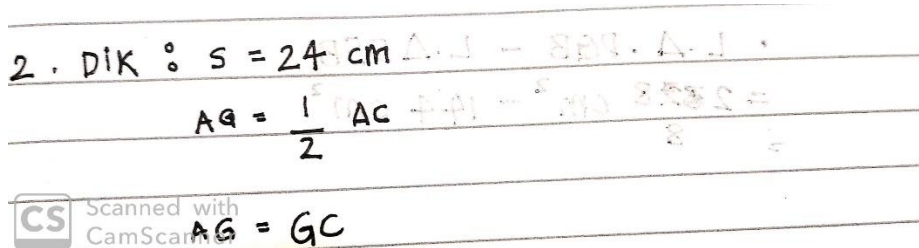 2. DIK : S = 24 cm
AG = 1/2 AC
CS Scanned with CamScanner
AG = GC